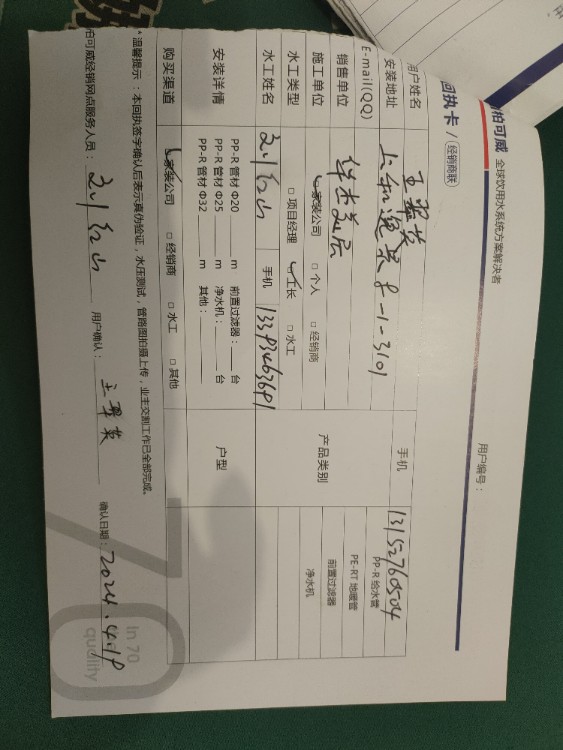 柏可威 全球饮用水系统方案解决者
回执卡 / 经销商联
用户编号：
用户姓名 王翠英 手机 13152760504
安装地址 上和逸景 8-1-3101
E-mail(QQ)
销售单位 华杰美居
施工单位 家装公司 □ 个人 □ 经销商
水工类型 □ 项目经理 工长 □ 水工
产品类别 PP-R 给水管
PE-RT 地暖管
前置过滤器
净水机
水工姓名 刘红山 手机 13393463691
安装详情 PP-R 管材 Φ20 m 前置过滤器： 台
PP-R 管材 Φ25 m 净水机： 台
PP-R 管材 Φ32 m 其他：
户型
购买渠道 家装公司 □ 经销商 □ 水工 □ 其他
*温馨提示：本回执签字确认后表示真伪验证，水压测试，管路图拍摄上传，业主交割工作已全部完成。
柏可威经销网点服务人员： 刘红山 用户确认： 王翠英 确认日期： 2024.4.19
70
In 70
quality